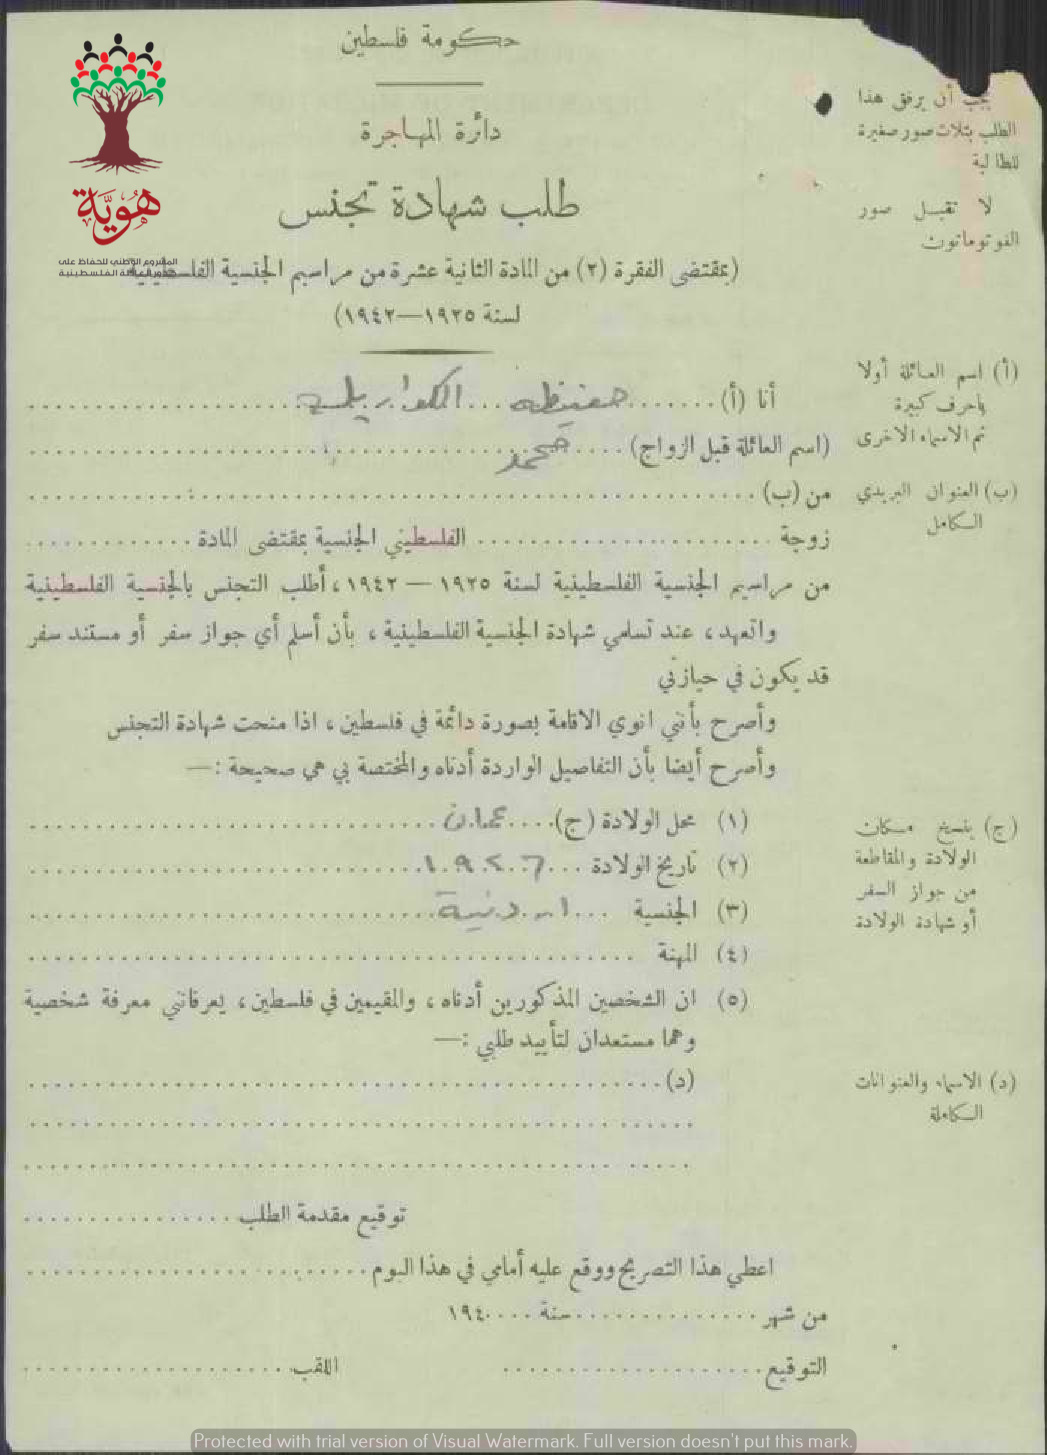 حكومة فلسطين
دائرة المهاجرة
طلب شهادة تجنس
(بمقتضى الفقرة (٢) من المادة الثانية عشرة من مراسيم الجنسية الفلسطينية
لسنة ١٩٢٥—١٩٤٢)
يجب أن يرفق هذا
الطلب بثلاث صور صغيرة
للطالبة
لا تقبل صور
الفوتوماتون
هوية
المشروع الوطني للحفاظ على
جذور العائلة الفلسطينية
(أ) اسم العائلة أولا
باحرف كبيرة
ثم الاسماء الاخرى
أنا (أ) ....... حفيظه ...
(اسم العائلة قبل الزواج) .... محمد
(ب) العنوان البريدي
الكامل
من (ب) ....
زوجة .... الفلسطيني الجنسية بمقتضى المادة ....
من مراسيم الجنسية الفلسطينية لسنة ١٩٢٥ — ١٩٤٢، أطلب التجنس بالجنسية الفلسطينية
واتعهد، عند تسلمي شهادة الجنسية الفلسطينية، بأن أسلم أي جواز سفر أو مستند سفر
قد يكون في حيازتي
وأصرح بأنني انوي الاقامة بصورة دائمة في فلسطين، اذا منحت شهادة التجنس
وأصرح أيضا بأن التفاصيل الواردة أدناه والمختصة بي هي صحيحة :—
(١) محل الولادة (ج) .... عمان
(ج) ينسخ مكان
الولادة والمقاطعة
من جواز السفر
أو شهادة الولادة
(٢) تاريخ الولادة .... ١٩٢٦
(٣) الجنسية ... اردنية
(٤) المهنة ....
(٥) ان الشخصين المذكورين أدناه، والمقيمين في فلسطين، يعرفانني معرفة شخصية
وهما مستعدان لتأييد طلبي :—
(د) ....
(د) الاسماء والعنوانات
الكاملة
توقيع مقدمة الطلب ....
اعطي هذا التصريح ووقع عليه أمامي في هذا اليوم ....
من شهر .... سنة .... ١٩٤
التوقيع .... اللقب ....
Protected with trial version of Visual Watermark. Full version doesn't put this mark.